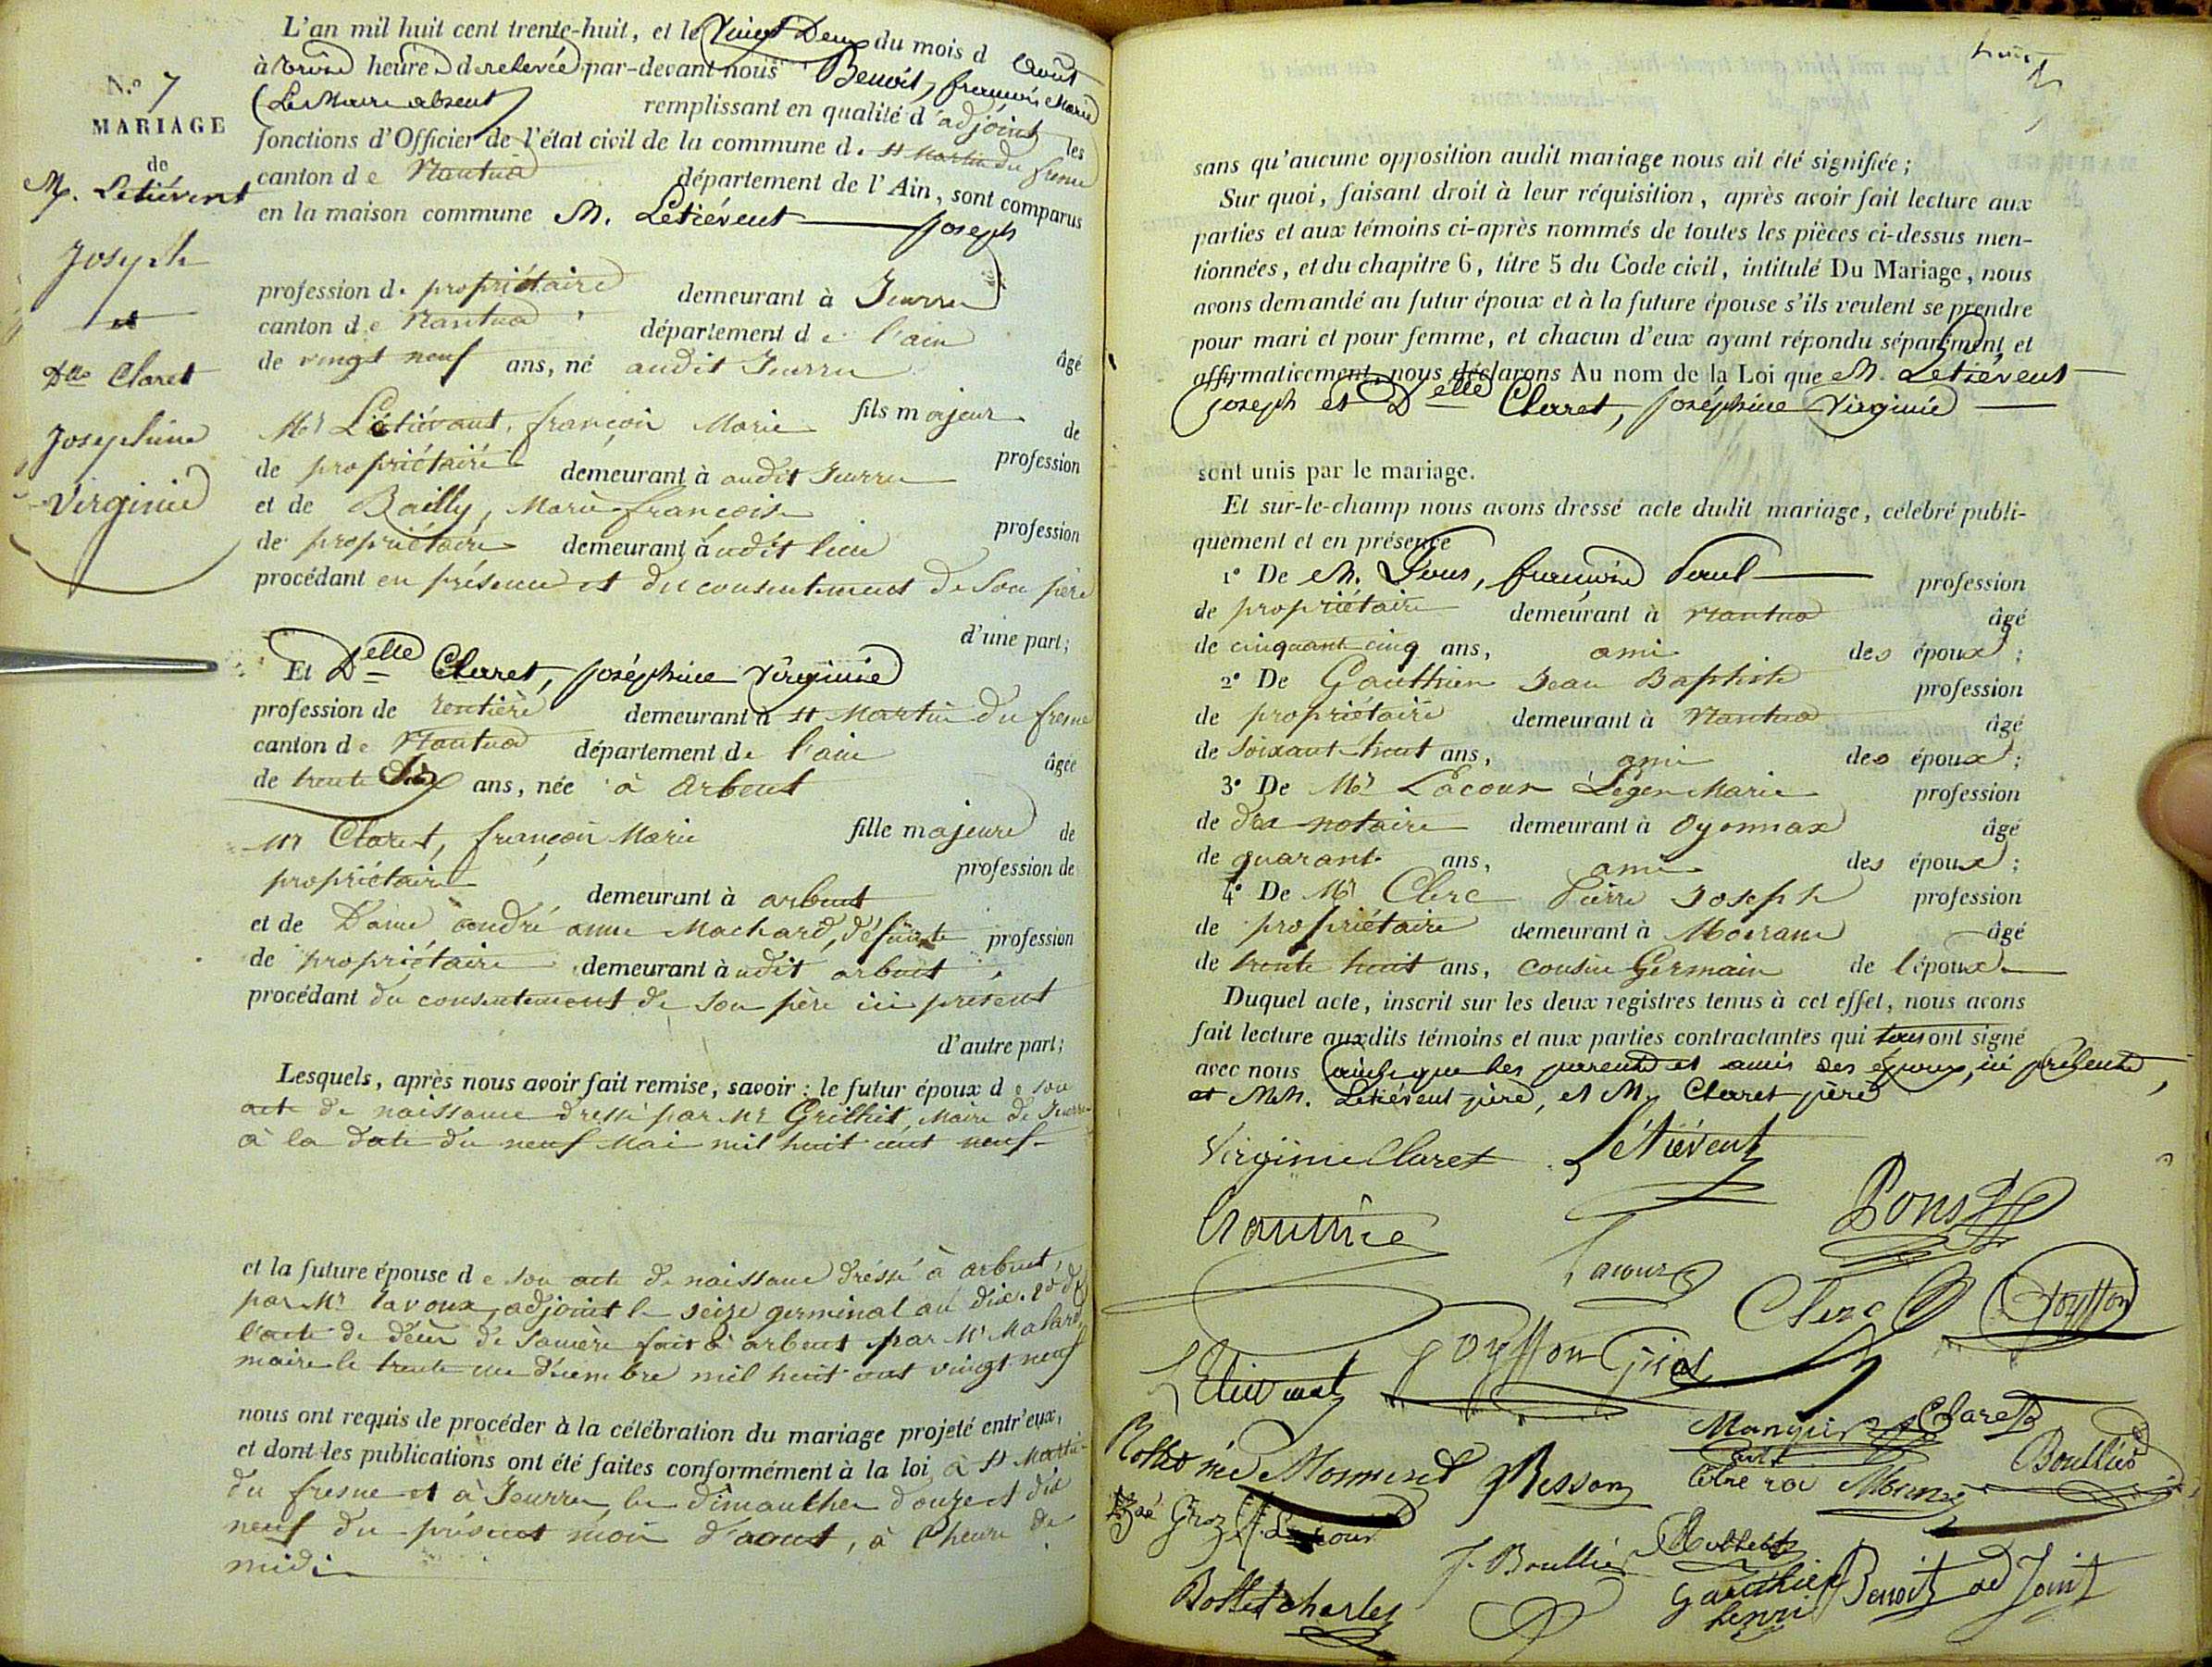 N.º 7
MARIAGE
de
M. Letiévent
Joseph
et
Dlle Claret
Josephine
Virginie
L'an mil huit cent trente-huit, et le Vingt Deux du mois d Août
à trois heures de relevée par-devant nous Benoit, françois Marie
(Le Maire absent) remplissant en qualité d'adjoint les
fonctions d'Officier de l'état civil de la commune de St Martin du fresne
canton de Nantua département de l'Ain, sont comparus
en la maison commune M. Letiévent Joseph
profession de propriétaire demeurant à Jeurre
canton de Nantua département de l'ain
âgé
de vingt neuf ans, né audit Jeurre
fils majeur de
Mr Létiévant, françois Marie profession
de propriétaire demeurant à audit Jeurre
et de Bailly, Marie françoise profession
de propriétaire demeurant audit lieu
procédant en présence et du consentement de son père
d'une part;
Et Delle Claret, Joséphine Virginie
profession de rentière demeurant à St Martin du fresne
canton de Nantua département de l'ain âgée
de trente ans, née à Arbent
fille majeure de
Mr Claret, françois Marie profession de
propriétaire demeurant à arbent
et de Dame andré anne Machard, défunte profession
de propriétaire demeurant audit arbent
procédant du consentement de son père ici présent
d'autre part;
Lesquels, après nous avoir fait remise, savoir: le futur époux de son
acte de naissance dressé par Mr Grillet, Maire de Jeurre
à la date du neuf Mai mil huit cent neuf
et la future épouse de son acte de naissance dréssé à arbent,
par Mr Lavoux, adjoint le seize germinal an dix. 2º de
l'acte de décès de sa mère fait à arbent par Mr
maire le trente un décembre mil huit cent vingt neuf
nous ont requis de procéder à la célébration du mariage projeté entr'eux,
et dont les publications ont été faites conformément à la loi, à St Martin
du fresne et à Jeurre, les dimanches douze et dix
neuf du présent mois d'aout, à l'heure de
midi
huit
sans qu'aucune opposition audit mariage nous ait été signifiée;
Sur quoi, faisant droit à leur réquisition, après avoir fait lecture aux
parties et aux témoins ci-après nommés de toutes les pièces ci-dessus men-
tionnées, et du chapitre 6, titre 5 du Code civil, intitulé Du Mariage, nous
avons demandé au futur époux et à la future épouse s'ils veulent se prendre
pour mari et pour femme, et chacun d'eux ayant répondu séparément et
affirmativement, nous déclarons Au nom de la Loi que M. Letiévent
Joseph et Delle Claret, Joséphine Virginie
sont unis par le mariage.
Et sur-le-champ nous avons dressé acte dudit mariage, célébré publi-
quement et en présence
1º De M. Pons, françois Paul profession
de propriétaire demeurant à Nantua âgé
de cinquante cinq ans, ami des époux;
2º De Gauthier Jean Baptiste profession
de propriétaire demeurant à Nantua âgé
de soixante huit ans, ami des époux;
3º De Mr Lacour Léger Marie profession
de notaire demeurant à Oyonnax âgé
de quarante ans, ami des époux;
4º De Mr Clerc Pierre Joseph profession
de propriétaire demeurant à Moirans âgé
de trente huit ans, cousin Germain de l'époux
Duquel acte, inscrit sur les deux registres tenus à cet effet, nous avons
fait lecture auxdits témoins et aux parties contractantes qui tous ont signé
avec nous ainsi que les parents et amis des époux, ici présents,
et MM. Letiévent père, et M. Claret père
Virginie Claret Létiévent
Gauthier Pons
Lacour Clerc Goyffon
Létiévent Goyffon
Claret
Rollet née Besson
Boullier
J. Boullier Rollet
Bollet charles Gauthier henri Benoit adjoint